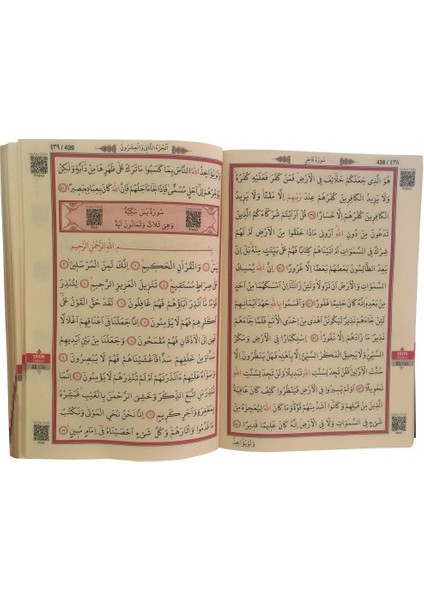 ٤٣٨ / 438
سُورَةُ فَاطِرٍ
هُوَ الَّذِي جَعَلَكُمْ خَلَائِفَ فِي الْاَرْضِ فَمَنْ كَفَرَ فَعَلَيْهِ كُفْرُهُ
وَلَا يَزِيدُ الْكَافِرِينَ كُفْرُهُمْ عِنْدَ رَبِّهِمْ اِلَّا مَقْتًا وَلَا يَزِيدُ
الْكَافِرِينَ كُفْرُهُمْ اِلَّا خَسَارًا ﴿٣٩﴾ قُلْ اَرَاَيْتُمْ شُرَكَاءَكُمُ الَّذِينَ
تَدْعُونَ مِنْ دُونِ اللّٰهِ اَرُونِي مَاذَا خَلَقُوا مِنَ الْاَرْضِ اَمْ لَهُمْ
شِرْكٌ فِي السَّمٰوَاتِ اَمْ اٰتَيْنَاهُمْ كِتَابًا فَهُمْ عَلٰى بَيِّنَتٍ مِنْهُ بَلْ اِنْ
يَعِدُ الظَّالِمُونَ بَعْضُهُمْ بَعْضًا اِلَّا غُرُورًا ﴿٤٠﴾ اِنَّ اللّٰهَ يُمْسِكُ
السَّمٰوَاتِ وَالْاَرْضَ اَنْ تَزُولَا وَلَئِنْ زَالَتَا اِنْ اَمْسَكَهُمَا مِنْ اَحَدٍ
مِنْ بَعْدِهِ اِنَّهُ كَانَ حَلِيمًا غَفُورًا ﴿٤١﴾ وَاَقْسَمُوا بِاللّٰهِ جَهْدَ اَيْمَانِهِمْ
لَئِنْ جَاءَهُمْ نَذِيرٌ لَيَكُونُنَّ اَهْدٰى مِنْ اِحْدَى الْاُمَمِ فَلَمَّا جَاءَهُمْ
نَذِيرٌ مَا زَادَهُمْ اِلَّا نُفُورًا ﴿٤٢﴾ اِسْتِكْبَارًا فِي الْاَرْضِ وَمَكْرَ
السَّيِّئِ وَلَا يَحِيقُ الْمَكْرُ السَّيِّئُ اِلَّا بِاَهْلِهِ فَهَلْ يَنْظُرُونَ اِلَّا
سُنَّتَ الْاَوَّلِينَ فَلَنْ تَجِدَ لِسُنَّتِ اللّٰهِ تَبْدِيلًا وَلَنْ تَجِدَ لِسُنَّتِ اللّٰهِ
تَحْوِيلًا ﴿٤٣﴾ اَوَلَمْ يَسِيرُوا فِي الْاَرْضِ فَيَنْظُرُوا كَيْفَ كَانَ عَاقِبَةُ
الَّذِينَ مِنْ قَبْلِهِمْ وَكَانُوا اَشَدَّ مِنْهُمْ قُوَّةً وَمَا كَانَ اللّٰهُ لِيُعْجِزَهُ مِنْ
شَيْءٍ فِي السَّمٰوَاتِ وَلَا فِي الْاَرْضِ اِنَّهُ كَانَ عَلِيمًا قَدِيرًا ﴿٤٤﴾
وَلَوْ يُؤَاخِذُ
اَلْجُزْءُ الثَّانِي وَالْعِشْرُونَ
٤٣٩ / 439
وَلَوْ يُؤَاخِذُ اللّٰهُ النَّاسَ بِمَا كَسَبُوا مَا تَرَكَ عَلٰى ظَهْرِهَا مِنْ دَابَّةٍ وَلٰكِنْ
يُؤَخِّرُهُمْ اِلٰى اَجَلٍ مُسَمًّى فَاِذَا جَاءَ اَجَلُهُمْ فَاِنَّ اللّٰهَ كَانَ بِعِبَادِهِ بَصِيرًا ﴿٤٥﴾
سُورَةُ يٰسٓ مَكِّيَّةٌ
وَهِيَ ثَلَاثٌ وَثَمَانُونَ اٰيَةً
بِسْمِ اللّٰهِ الرَّحْمٰنِ الرَّحِيمِ
يٰسٓ ﴿١﴾ وَالْقُرْاٰنِ الْحَكِيمِ ﴿٢﴾ اِنَّكَ لَمِنَ الْمُرْسَلِينَ ﴿٣﴾
عَلٰى صِرَاطٍ مُسْتَقِيمٍ ﴿٤﴾ تَنْزِيلَ الْعَزِيزِ الرَّحِيمِ ﴿٥﴾ لِتُنْذِرَ
قَوْمًا مَا اُنْذِرَ اٰبَاؤُهُمْ فَهُمْ غَافِلُونَ ﴿٦﴾ لَقَدْ حَقَّ الْقَوْلُ عَلٰى
اَكْثَرِهِمْ فَهُمْ لَا يُؤْمِنُونَ ﴿٧﴾ اِنَّا جَعَلْنَا فِي اَعْنَاقِهِمْ اَغْلَالًا
فَهِيَ اِلَى الْاَذْقَانِ فَهُمْ مُقْمَحُونَ ﴿٨﴾ وَجَعَلْنَا مِنْ بَيْنِ اَيْدِيهِمْ
سَدًّا وَمِنْ خَلْفِهِمْ سَدًّا فَاَغْشَيْنَاهُمْ فَهُمْ لَا يُبْصِرُونَ ﴿٩﴾
وَسَوَاءٌ عَلَيْهِمْ ءَاَنْذَرْتَهُمْ اَمْ لَمْ تُنْذِرْهُمْ لَا يُؤْمِنُونَ ﴿١٠﴾ اِنَّمَا تُنْذِرُ
مَنِ اتَّبَعَ الذِّكْرَ وَخَشِيَ الرَّحْمٰنَ بِالْغَيْبِ فَبَشِّرْهُ
بِمَغْفِرَةٍ وَاَجْرٍ كَرِيمٍ ﴿١١﴾ اِنَّا نَحْنُ نُحْيِ الْمَوْتٰى وَنَكْتُبُ
مَا قَدَّمُوا وَاٰثَارَهُمْ وَكُلَّ شَيْءٍ اَحْصَيْنَاهُ فِي اِمَامٍ مُبِينٍ ﴿١٢﴾